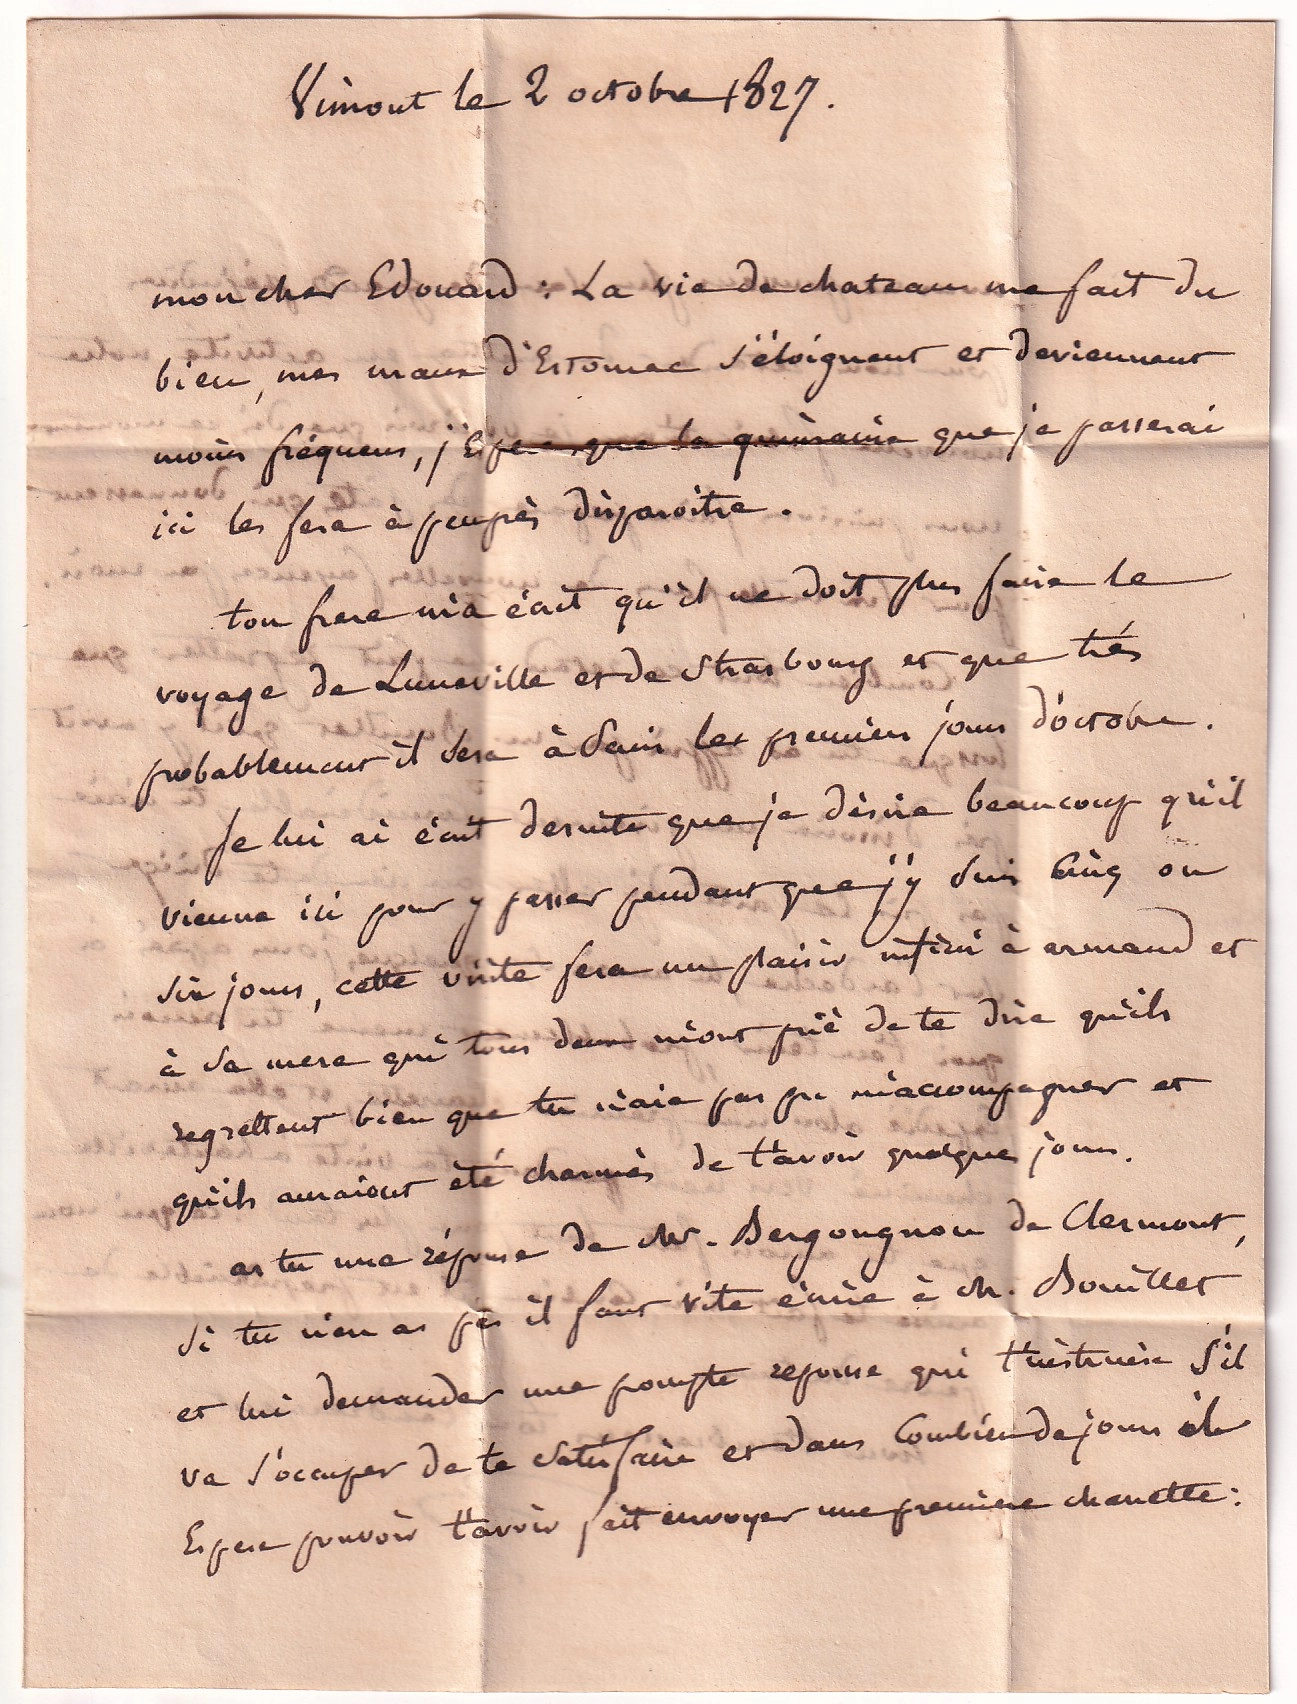 Vimont le 2 octobre 1827.
mon cher Edouard : La vie de chateau me fait du
bien, mes maux d'Estomac s'éloignent et deviennent
moins fréquens, j'Espere que la quinzaine que je passerai
ici les fera à peuprès disparoitre.
ton frere m'a écrit qu'il ne doit plus faire le
voyage de Luneville et de Strasbourg et que trés
probablement il sera à Paris les premiers jours d'octobre.
Je lui ai écrit desuite que je désire beaucoup qu'il
vienne ici pour y passer pendant que j'y suis Cinq ou
six jours, cette visite fera un plaisir infini à armand et
à sa mere qui tous deux m'ont prié de te dire qu'ils
regrettent bien que tu n'aie pas pu m'accompagner et
qu'ils auraient été charmés de t'avoir quelques jours.
as tu une réponse de Mr. Bergougnon de Clermont,
si tu n'en as pas il faut vite écrire à M. Bouillet
et lui demander une prompte reponse qui t'instruise s'il
va s'occuper de te satisfaire et dans Combien de jours il
Espere pouvoir t'avoir fait envoyer une premiere charette :